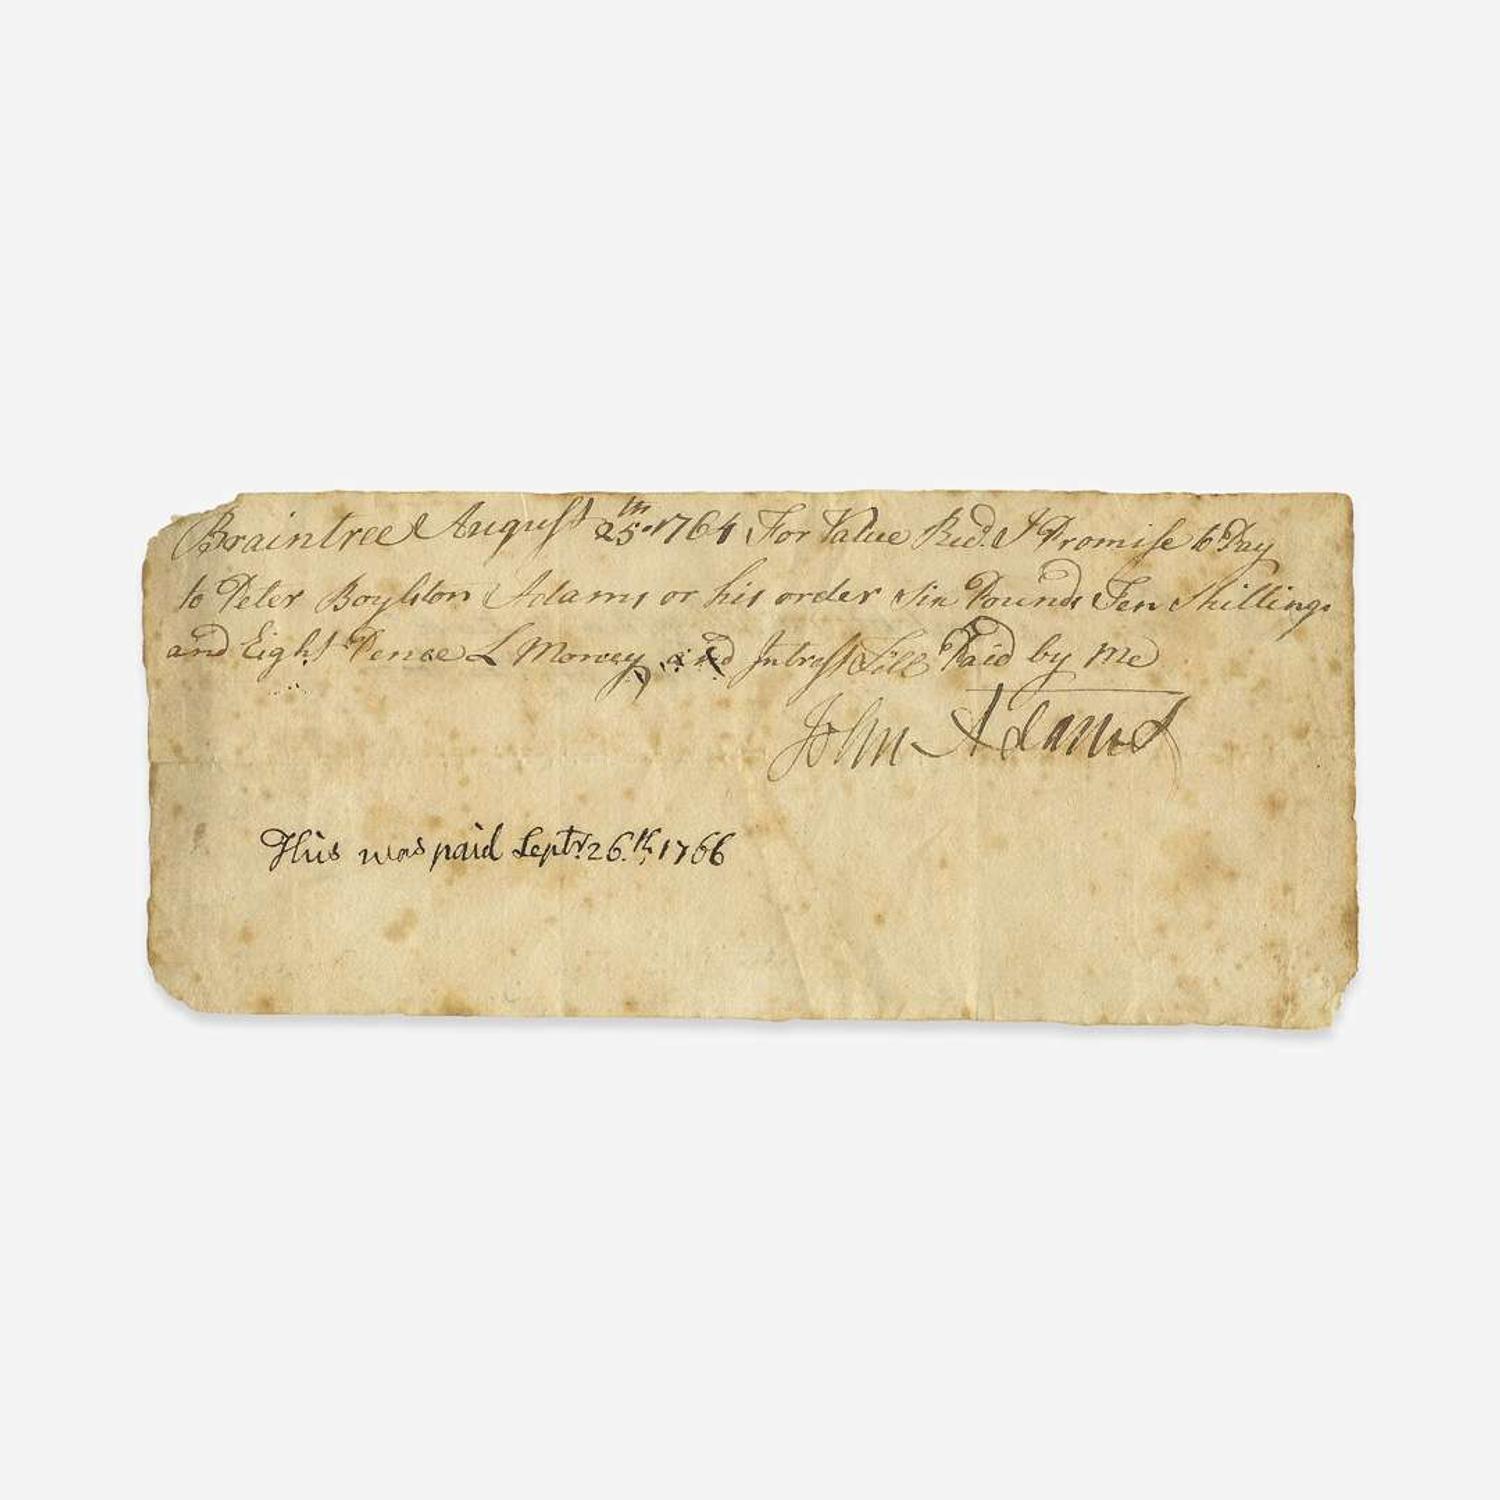 Braintree August 25th 1764 For Value Recd. I Promise to Pay
to Peter Boylston Adams or his order Six Pounds Ten Shillings
and Eight Pence L Money, and Intrest Till Paid by me
John Adams
This was paid Septr. 26.th 1766